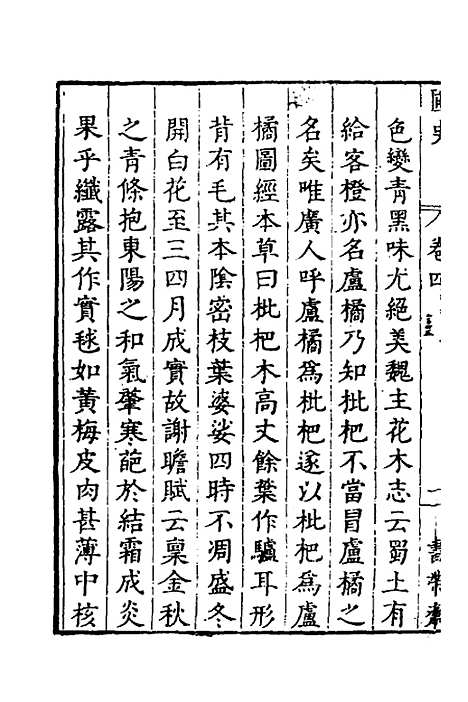 卷四
色變青黑味尤絕美魏主花木志云蜀土有
給客橙亦名盧橘乃知枇杷不當冒盧橘之
名矣唯廣人呼盧橘為枇杷遂以枇杷為盧
橘圖經本草曰枇杷木高丈餘葉作驢耳形
背有毛其本陰密枝葉婆娑四時不凋盛冬
開白花至三四月成實故謝瞻賦云稟金秋
之青條抱東陽之和氣肇寒葩於結霜成炎
果乎纖露其作實毬如黃梅皮肉甚薄中核